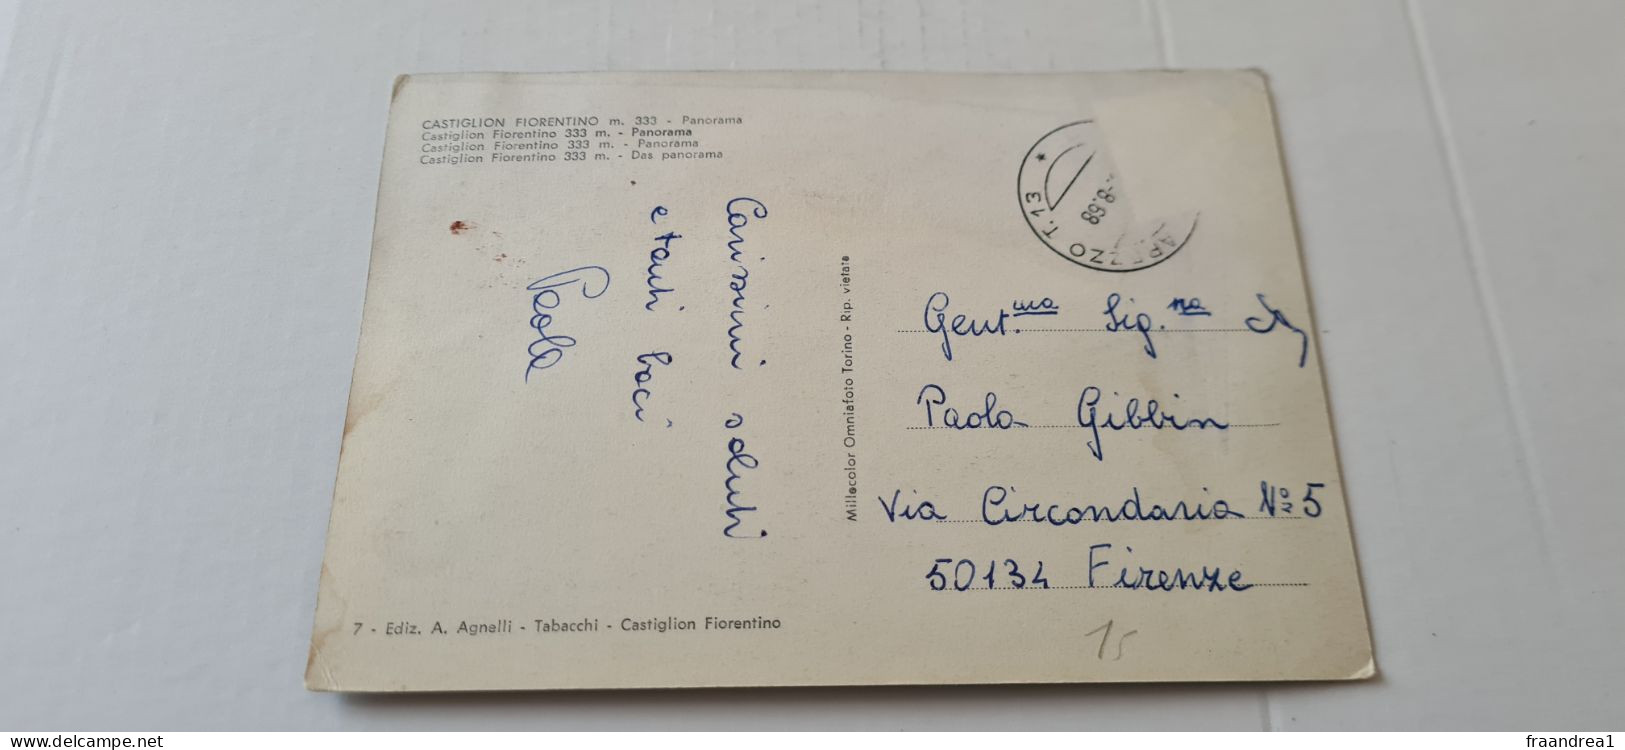 CASTIGLION FIORENTINO m. 333 - Panorama
Castiglion Fiorentino 333 m. - Panorama
Castiglion Fiorentino 333 m. - Panorama
Castiglion Fiorentino 333 m. - Das panorama
Carissimi saluti
e tanti baci
Paola
Millecolor Omniafoto Torino - Rip. vietata
AREZZO T.13 *
-8.68
Gent.ma Sig.na
Paola Gibbin
Via Circondaria No 5
50134 Firenze
15
7 - Ediz. A. Agnelli - Tabacchi - Castiglion Fiorentino
www.delcampe.net
fraandrea1